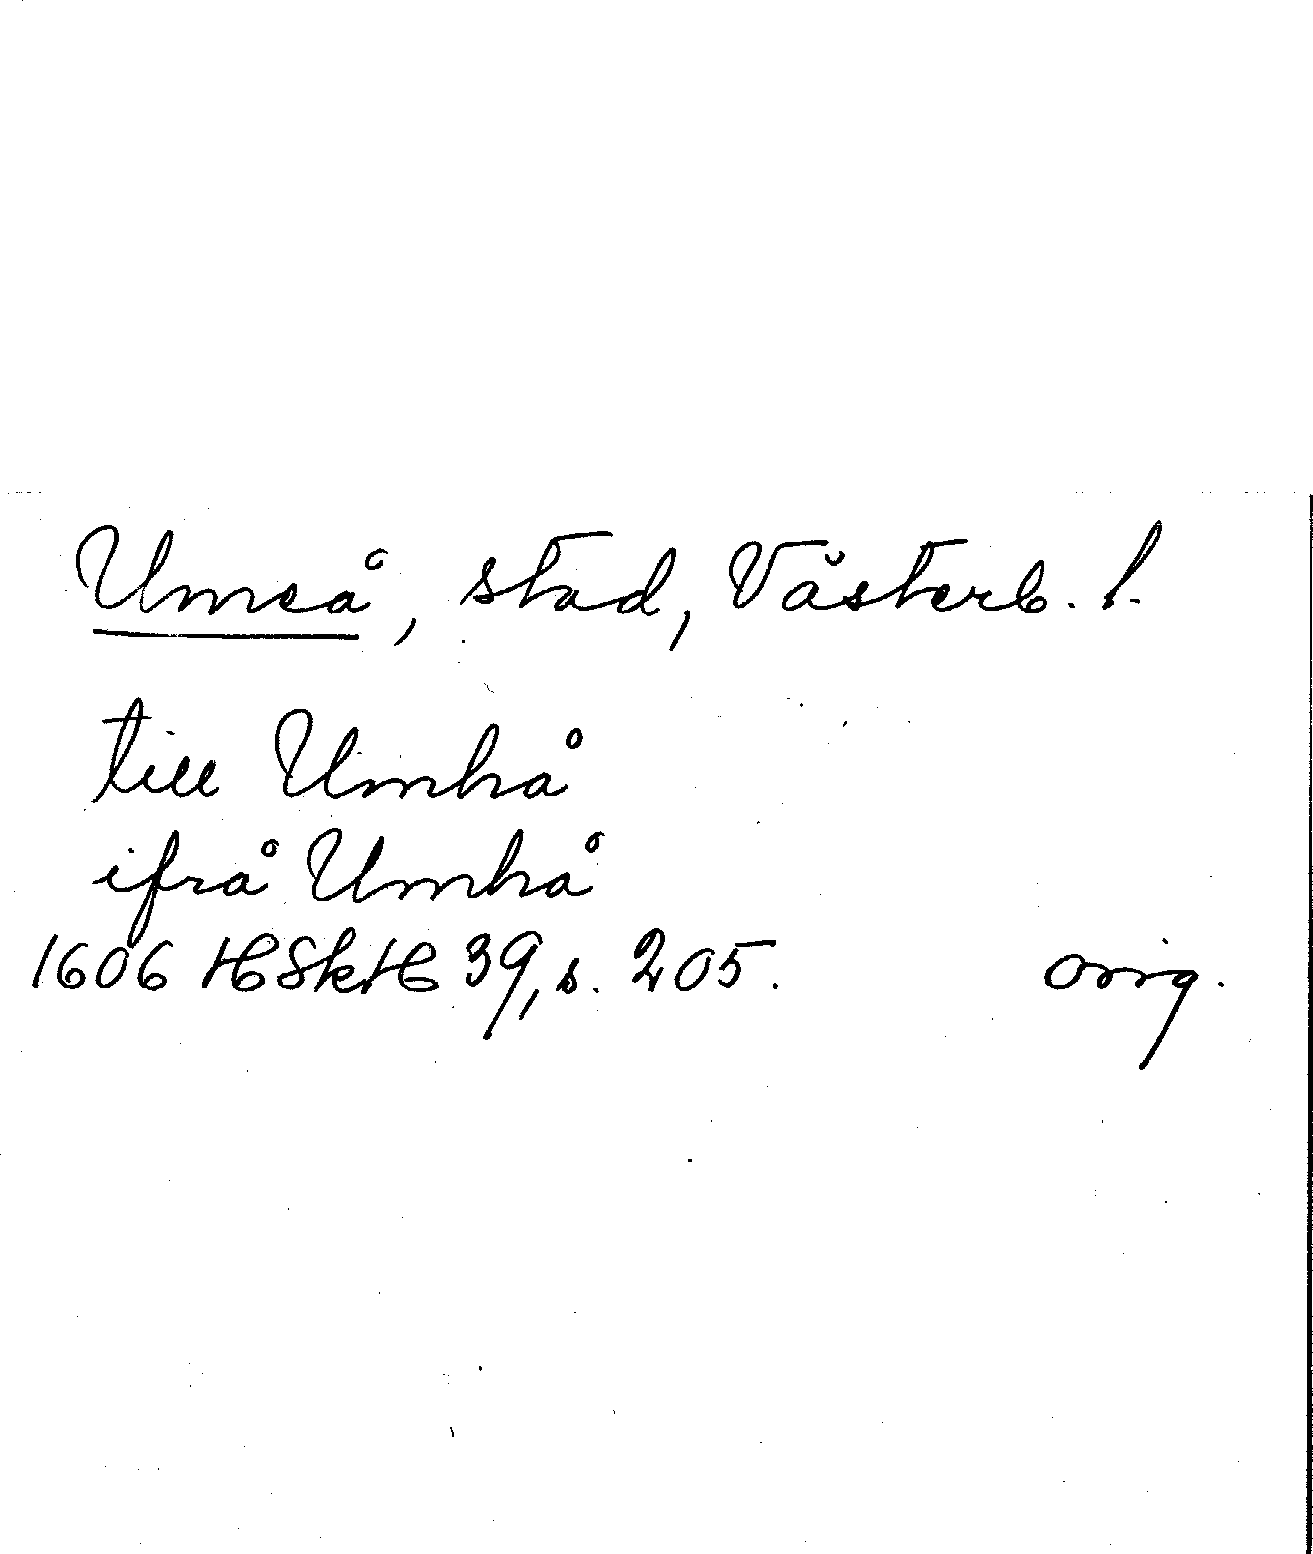 Umeå, stad, Västerb. l.
till Umhå
ifrå Umhå
1606 HSkH 39, s. 205. orig.